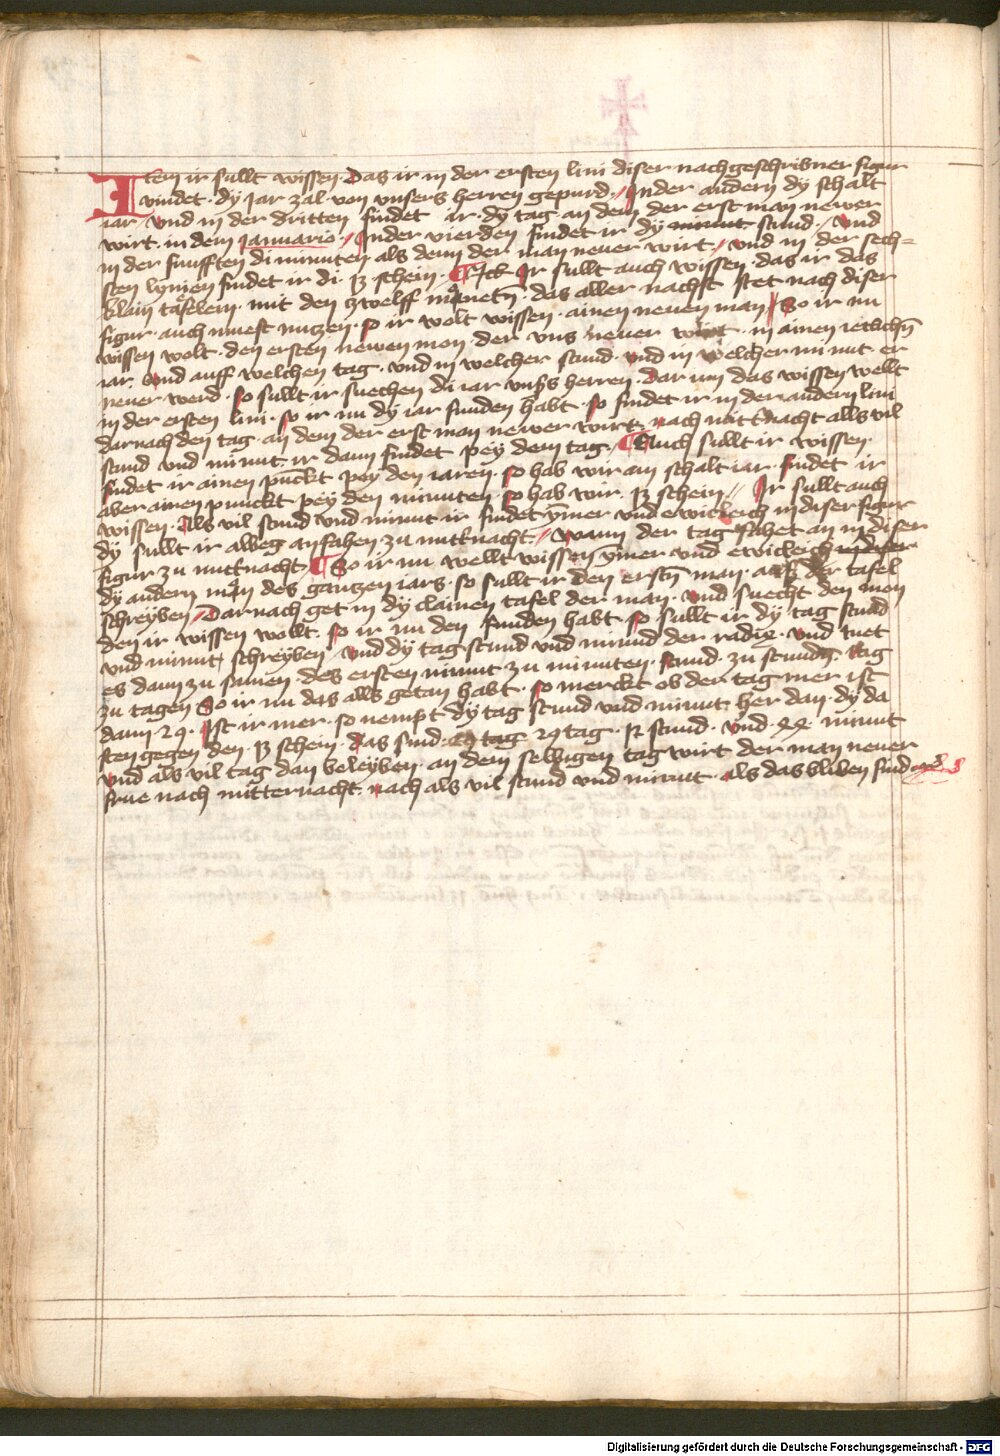 Item ir sullt wissen · Das ir in der ersten lini diser nachgeschribner figur
vindet · dy jar zal von unsers herren gepurd · Inder andern dy schalt
iar · Und in der dritten findet ir · dy tag an dem der erst man newer
wirt · in dem januario · Inder vierden findet ir dy minut stund · Und
in der funfften di minuten als dem der man neuer wirt · und in der sech=
sten lynien findet ir di · 13 schein · Ir sullt auch wissen · das ir das
klain täfelein · mit den zwelff · das aller nachst stet nach diser
figur · auch muest nutzen · so ir wolt wissen · ainen neuen man · So ir nu
wissen wolt · den ersten newen mon · der uns neuer wirt · in ainen ietlichn
iar · Und auff welchen tag · und in welcher stund · und in welcher minut · er
neuer werd · so sullt ir suechen di iar unsers herren · Dar um das wissen wellt
in der ersten lini · so ir nu dy iar funden habt · so findet ir in der andern lini
darnach den tag · an dem der erst man newer wirt · nach mittnacht alls vil
stund und minut · ir dann findet pey dem tag · Auch sullt ir wissen ·
findet ir ainen punckt pey den iaren · so hab wir ain schalt iar · findet ir
aber ainen punckt pey den minuten · so hab wir · 13 schein · Ir sullt auch
wissen · Als vil stund und minut ir findet ymer und ewicleich in diser figur
dy sullt ir allbeg anfahen zu mittnacht · Wann der tag fahet an in diser
figur zu mittnacht · So ir nu wellt wissen ymer und ewicleich in diser
dy andern des gantzen iars · so sullt ir den erstn man · aus der tafel
schreyben · Darnach get in dy clainen tafel der man · und suecht den men
den ir wissen wollt · so ir nu den funden habt · so sullt ir dy tag stund
und minut · schreyben · und dy tag stund und minud der radix · und tuet
es dann zu samen · des ersten minut zu minuten · stund · zu stunden · tag
zu tagen · So ir nu das alls getan habt · so merckt ob der tag mer ist
dann 29 · Ist ir mer · so nempt dy tag stund und minut her dan · dy da
sten gegen den · 13 schein · das sind · 29 tag 29 tag · 12 stund · und · · minut
und als vil tag dan beleyben · an dem selbigen tag wirt der man neuer
frue nach mitternacht · nach als vil stund und minut · als das bliben sind

Digitalisierung gefördert durch die Deutsche Forschungsgemeinschaft - DFG